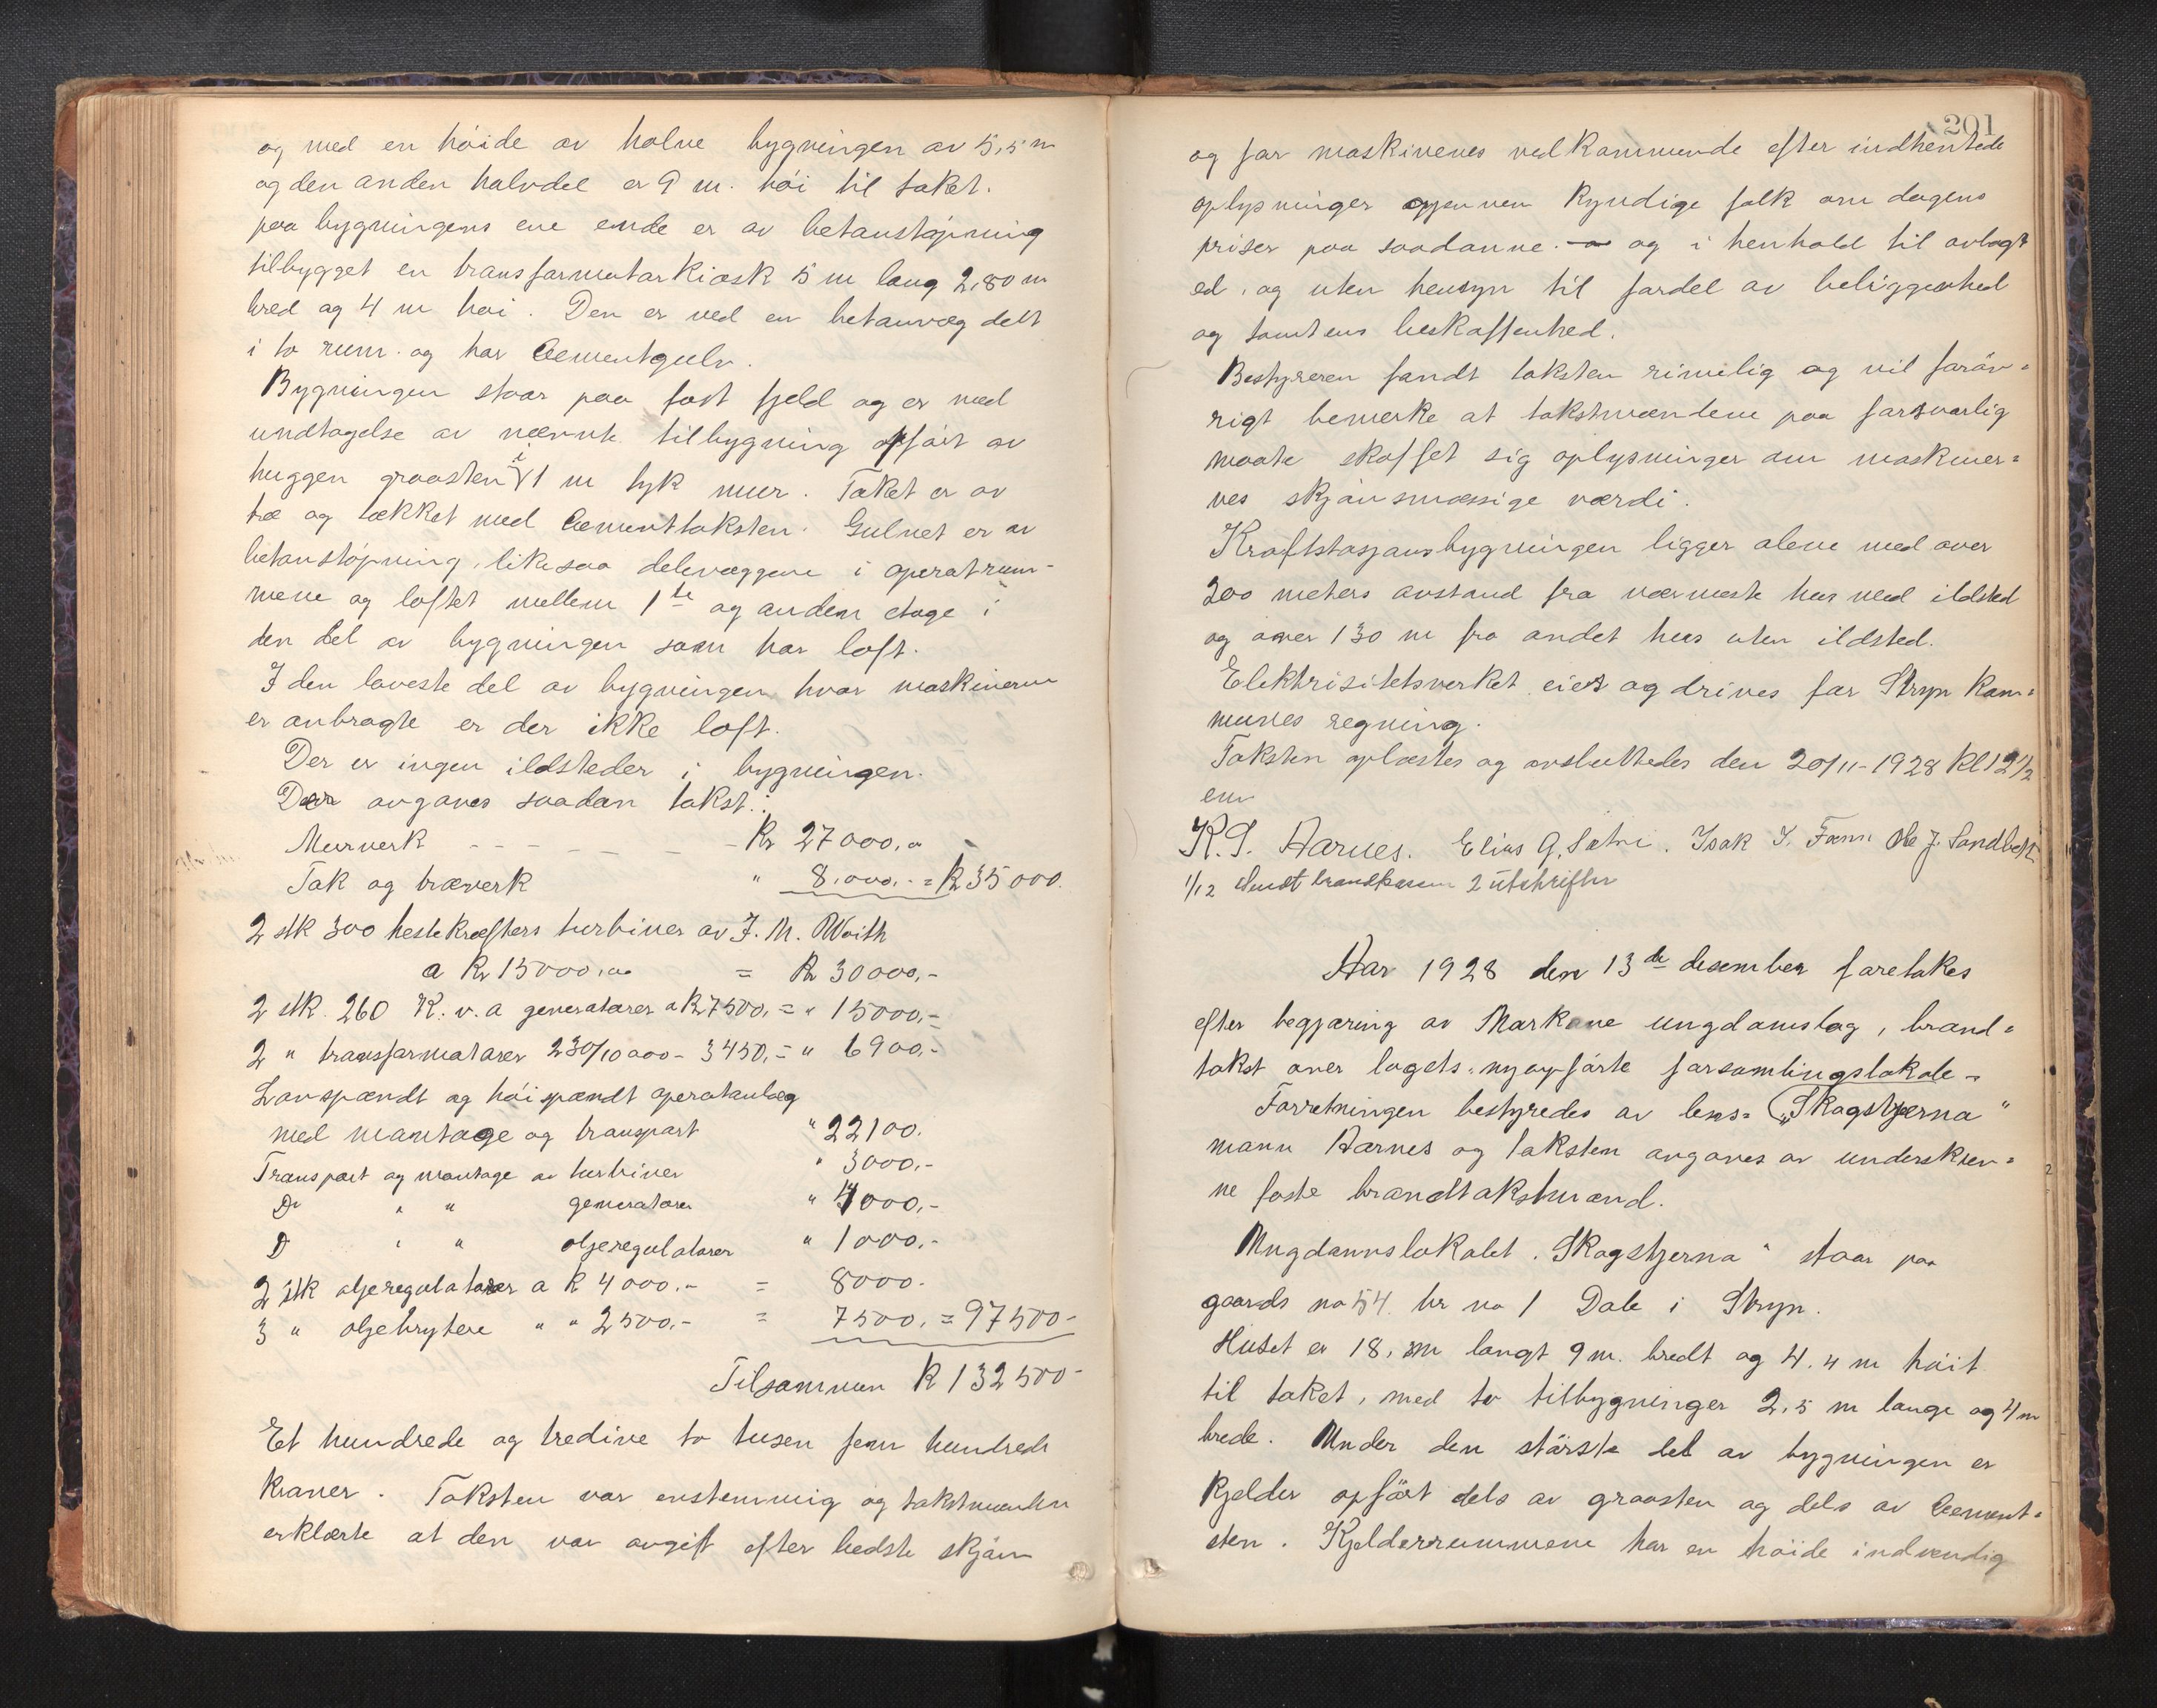 og med en høide av halve bygningen av 5,5 m
og den anden halvdel er 9 m. høi til taket.
paa bygningens ene ende er av betonstøpning
tilbygget en transformatorkiosk 5 m lang 2,80 m
bred og 4 m høi. Den er ved en betonvæg delt
i to rum og har Cementgulv.
Bygningen staar paa fast fjeld og er med
undtagelse av nævnte tilbygning opført av
huggen graasten i 1 m tyk mur. Taket er av
træ og tækket med Cementtaksten. Gulvet er av
betonstøpning, likesaa delevæggene i operatrum-
mene og loftet mellem 1ste og anden etage i
den del av bygningen som har loft.
I den laveste del av bygningen hvor maskinerne
er anbragte er der ikke loft.
Der er ingen ildsteder i bygningen.
Der avgaves saadan takst:
Murverk - - - - - - Kr 27000,00
Tak og træverk " 8.000,- = Kr 35000.
2 stk 300 hestekræfters turbiner av J. M. Woith
a Kr 15000,00 = Kr 30000,-
2 stk. 260 K.v.a generatorer a Kr 7500,= " 15000,=
2 " transformatorer 230/10000 - 3450,= " 6900,-
Lavspændt og høispændt operatanlæg
med montage og transport " 22100.
Transport og montage av turbiner " 3000,-
Do " " generatorer " 4000,-
D " " oljeregulatorer " 1000,-
2 stk oljeregulatorer a Kr 4000.- = 8000.
3 " oljebrytere " " 2500,- = 7500, = 97500-
Tilsammen Kr 132500-
Et hundrede og tredive to tusen fem hundrede
Kroner. Taksten var enstemmig og takstmændene
erklærte at den var avgit efter bedste skjøn
201
og for maskinenes vedkommende efter indhentede
oplysninger gjennem kyndige folk om dagens
priser paa saadanne. og i henhold til avlagt
ed, og uten hensyn til fordel av beliggenhed
og tomtens beskaffenhed.
Bestyreren fandt taksten rimelig og vil forøv=
rigt bemerke at takstmændene paa forsvarlig
maate skaffet sig oplysninger om maskiner=
nes skjønsmæssige værdi.
Kraftstasjonsbygningen ligger alene med over
200 meters avstand fra nærmeste hus med ildsted
og over 130 m fra andet hus uten ildsted.
Elektrisitetsverket eies og drives for Stryn Kom=
munes regning.
Taksten oplæstes og avsluttedes den 20/11-1928 Kl 12½
em
K. S. Aarnes. Elias G. Sætre. Isak I. Fænn Ole J. Sandbekk
1/12 Sendt brandkassen 2 utskrifter
Aar 1928 den 13de desember foretokes
efter begjæring av Markane ungdomslag, brand=
takst over lagets nyopførte forsamlingslokale -
Forretningen bestyredes av lens= „Skogstjerna"
mann Aarnes og taksten avgaves av underskrev=
ne faste brandtakstmænd.
Ungdomslokalet „Skogstjerna" staar paa
gaards no 54. br no 1 Dale i Stryn.
Huset er 18, m langt 9 m. bredt og 4.4 m høit
til taket, med to tilbygninger 2,5 m lange og 4 m
brede. Under den største del av bygningen er
Kjelder opført dels av graasten og dels av Cement=
sten. Kjelderrummene har en høide indvendig